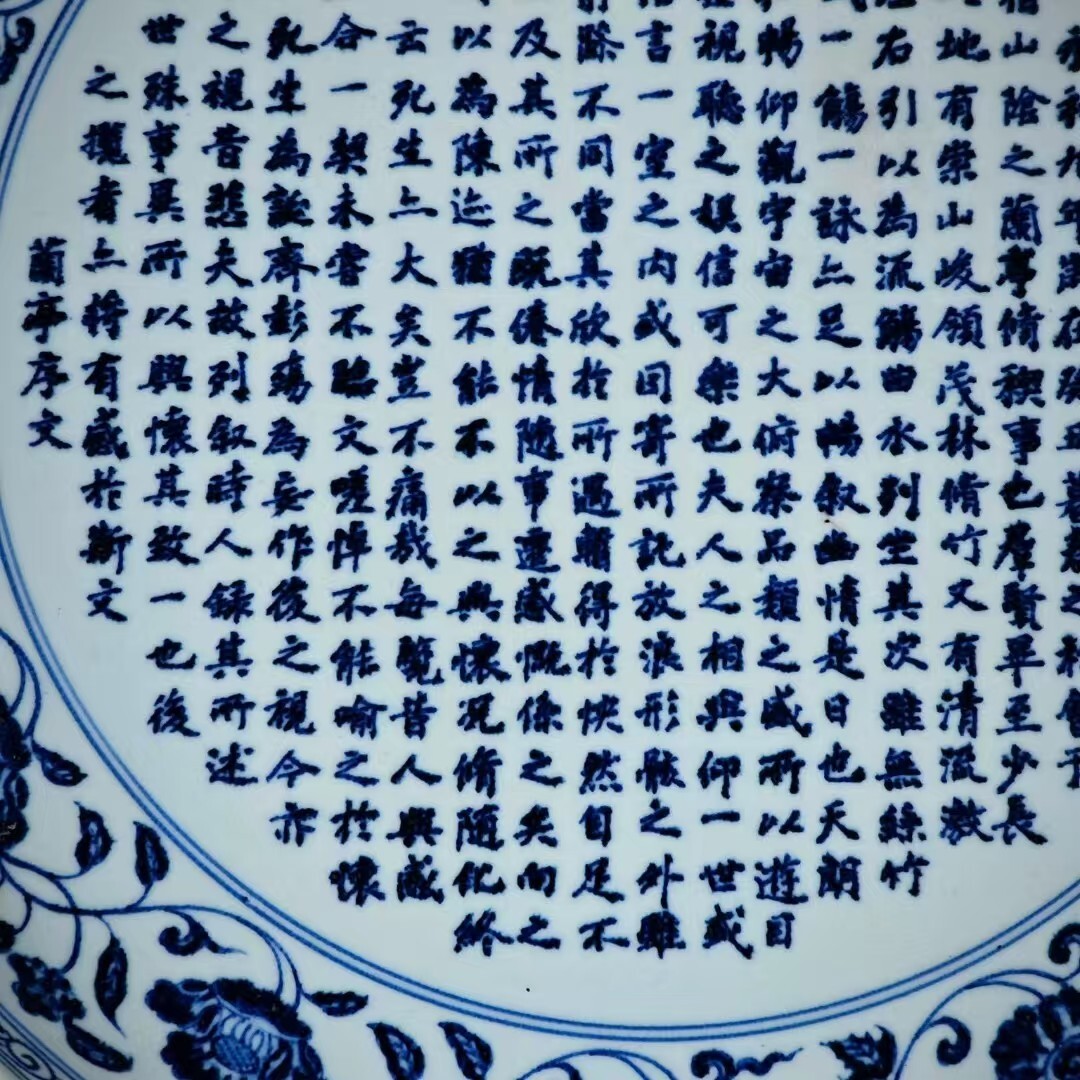 和九年歲在癸丑暮春之初會于
山陰之蘭亭脩禊事也羣賢畢至少長
地有崇山峻領茂林脩竹又有清流激
右引以為流觴曲水列坐其次雖無絲竹
一觴一詠亦足以暢叙幽情是日也天朗
暢仰觀宇宙之大俯察品類之盛所以遊目
視聽之娛信可樂也夫人之相與仰一世或
言一室之内或因寄所託放浪形骸之外雖
躁不同當其欣於所遇暫得於怏然自足不
及其所之既倦情隨事遷感慨係之矣向之
以為陳迹猶不能不以之興懷況脩隨化終
云死生亦大矣豈不痛哉每覽昔人興感
合一契未嘗不臨文嗟悼不能喻之於懷
死生為誕齊彭殤為妄作後之視今亦
之視昔悲夫故列叙時人錄其所述
世殊事異所以興懷其致一也後
之攬者亦將有感於斯文
蘭亭序文